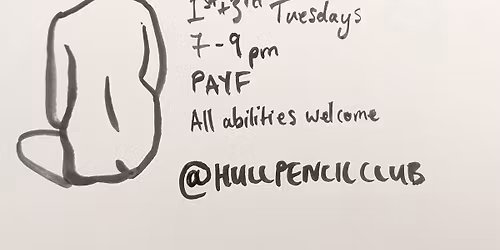 1st+3rd Tuesdays
7-9pm
PAYF
All abilities welcome
@HULLPENCILCLUB